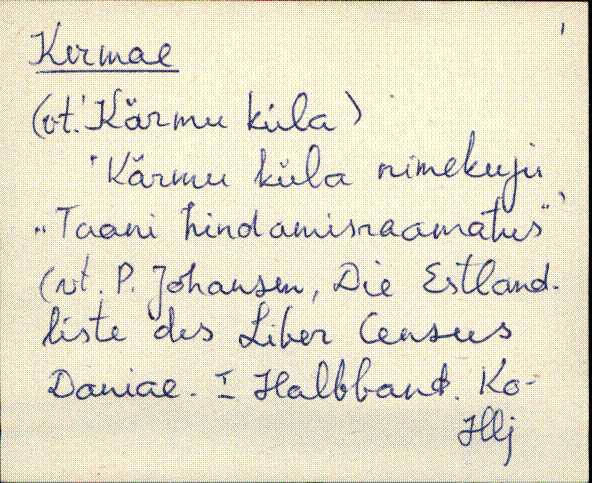 Kirmae
(vt. Kärmu küla)
Kärmu küla nimekuju
„Taani hindamisraamatus"
(vt. P. Johansen, Die Estland-
liste des Liber Census
Daniae. I Halbband. Ko-
Hlj